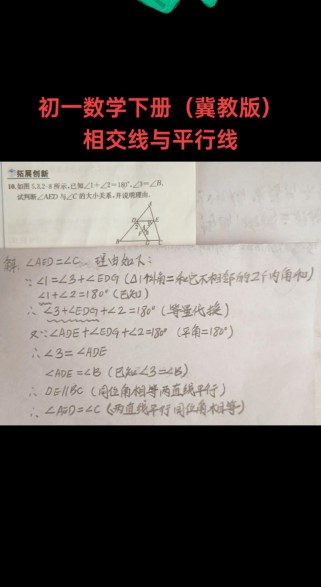 初一数学下册（冀教版）
相交线与平行线
拓展创新
10.如图5.3.2-8所示,已知∠1+∠2=180°,∠3=∠B,
试判断∠AED与∠C的大小关系,并说明理由.
解 ∠AED=∠C 理由如下:
∵∠1=∠3+∠EDG (△1外角=和它不相邻的2个内角和)
∠1+∠2=180° (已知)
∴ ∠3+∠EDG+∠2=180° (等量代换)
又∵∠ADE+∠EDG+∠2=180° (平角=180°)
∴∠3=∠ADE
∠ADE=∠B (已知∠3=∠B)
∴ DE∥BC (同位角相等两直线平行)
∴∠AED=∠C (两直线平行同位角相等)